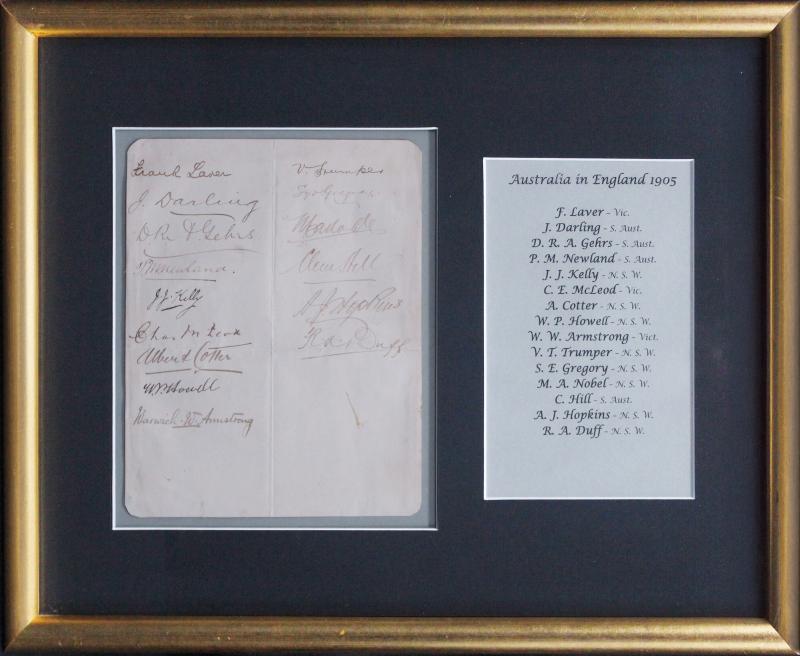 Frank Laver
J. Darling
D. R. A. Gehrs
P M Newland.
J.J. Kelly
Chas McLeod
Albert Cotter
W.P. Howell
Warwick. W. Armstrong
V. Trumper
Syd Gregory
M A Noble
Clem Hill
A J Hopkins
R. A. Duff
Australia in England 1905
F. Laver - Vic.
J. Darling - S. Aust.
D. R. A. Gehrs - S. Aust.
P. M. Newland - S. Aust.
J. J. Kelly - N. S. W.
C. E. McLeod - Vic.
A. Cotter - N. S. W.
W. P. Howell - N. S. W.
W. W. Armstrong - Vict.
V. T. Trumper - N. S. W.
S. E. Gregory - N. S. W.
M. A. Nobel - N. S. W.
C. Hill - S. Aust.
A. J. Hopkins - N. S. W.
R. A. Duff - N. S. W.